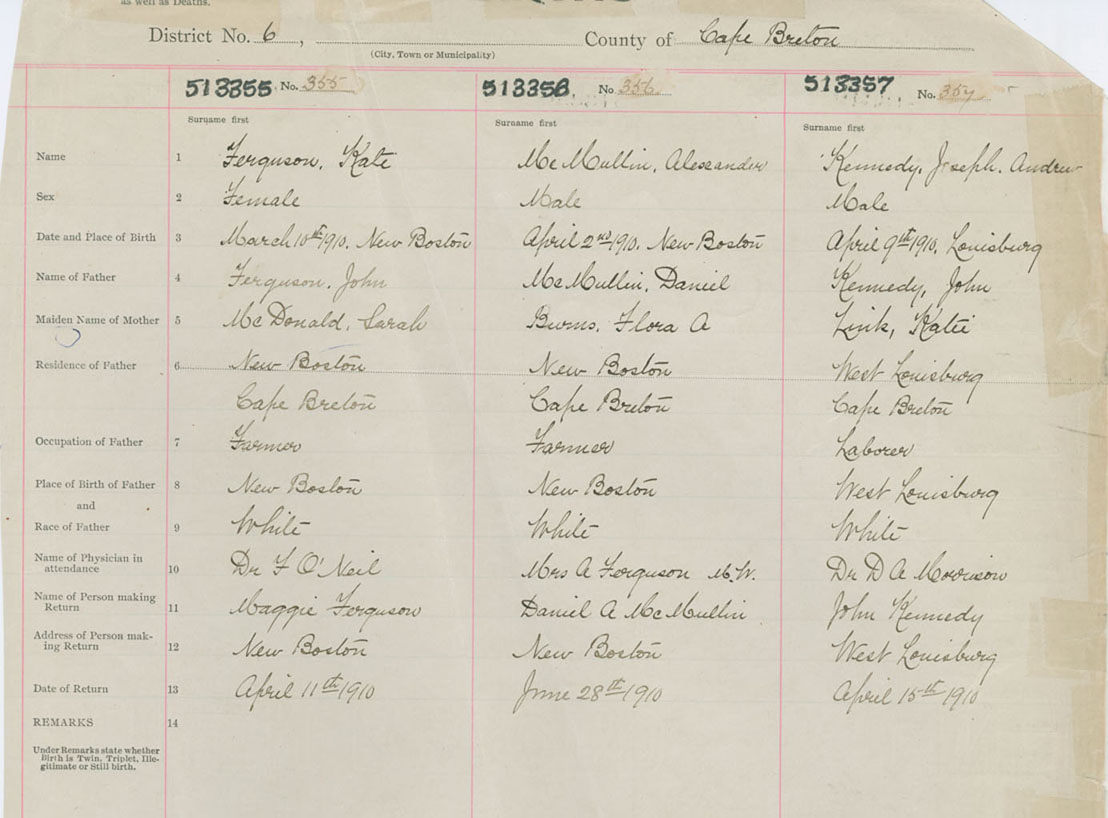 as well as Deaths.
District No. 6, County of Cape Breton
(City, Town or Municipality)
513355 No. 355 513356. No 356 513357 No. 357
Surname first Surname first Surname first
Name 1 Ferguson, Kate McMullin, Alexander Kennedy, Joseph. Andrew
Sex 2 Female Male Male
Date and Place of Birth 3 March 10th 1910. New Boston April 2nd 1910. New Boston April 9th 1910. Louisburg
Name of Father 4 Ferguson. John McMullin, Daniel Kennedy, John
Maiden Name of Mother 5 McDonald, Sarah Burns, Flora A Link, Katie
Residence of Father 6 New Boston New Boston West Louisburg
Cape Breton Cape Breton Cape Breton
Occupation of Father 7 Farmer Farmer Laborer
Place of Birth of Father 8 New Boston New Boston West Louisburg
and
Race of Father 9 White White White
Name of Physician in
attendance 10 Dr F O'Neil Mrs A Ferguson M.W. Dr D A Morrison
Name of Person making
Return 11 Maggie Ferguson Daniel A McMullin John Kennedy
Address of Person mak-
ing Return 12 New Boston New Boston West Louisburg
Date of Return 13 April 11th 1910 June 28th 1910 April 15th 1910
REMARKS 14
Under Remarks state whether
Birth is Twin, Triplet, Ille-
gitimate or Still birth.